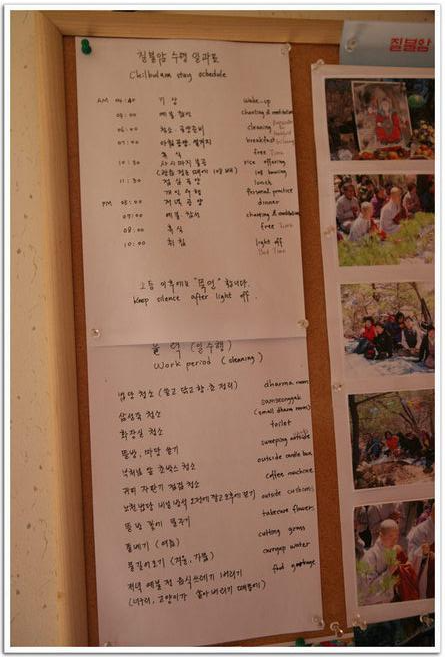 칠불암
칠불암 수행 일과표
Chilbulam stay schedule
AM 04:40 기상 wake-up
05:00 예불 참선 chanting & meditation
06:00 청소 공양준비 cleaning
07:00 아침공양, 설거지 breakfast
휴식 free Time
10:30 사시마지 불공 rice offering
108 bowing
11:30 점심공양 lunch
개인수행 personal practice
PM 05:00 저녁공양 dinner
07:00 예불 참선 chanting & meditation
08:00 휴식 free Time
10:00 취침 light off
Bed Time
소등 이후에는 "묵언" 합니다.
keep silence after light off.
울력 (일수행)
Work period (cleaning)
법당 청소 dharma room
삼성각 청소 samseonggak
(small dharma room)
화장실 청소 toilet
뜰방, 마당 쓸기 sweeping outside
청소 outside candle box
커피 자판기 점검 청소 coffee machine
outside cushions
물주기 takecare flower
풀베기 (여름) cutting grass
물길어오기 (겨울, 가뭄) carryup water
저녁 예불 전 음식쓰레기 버리기 food garbage
(너구리, 고양이가 때문에)